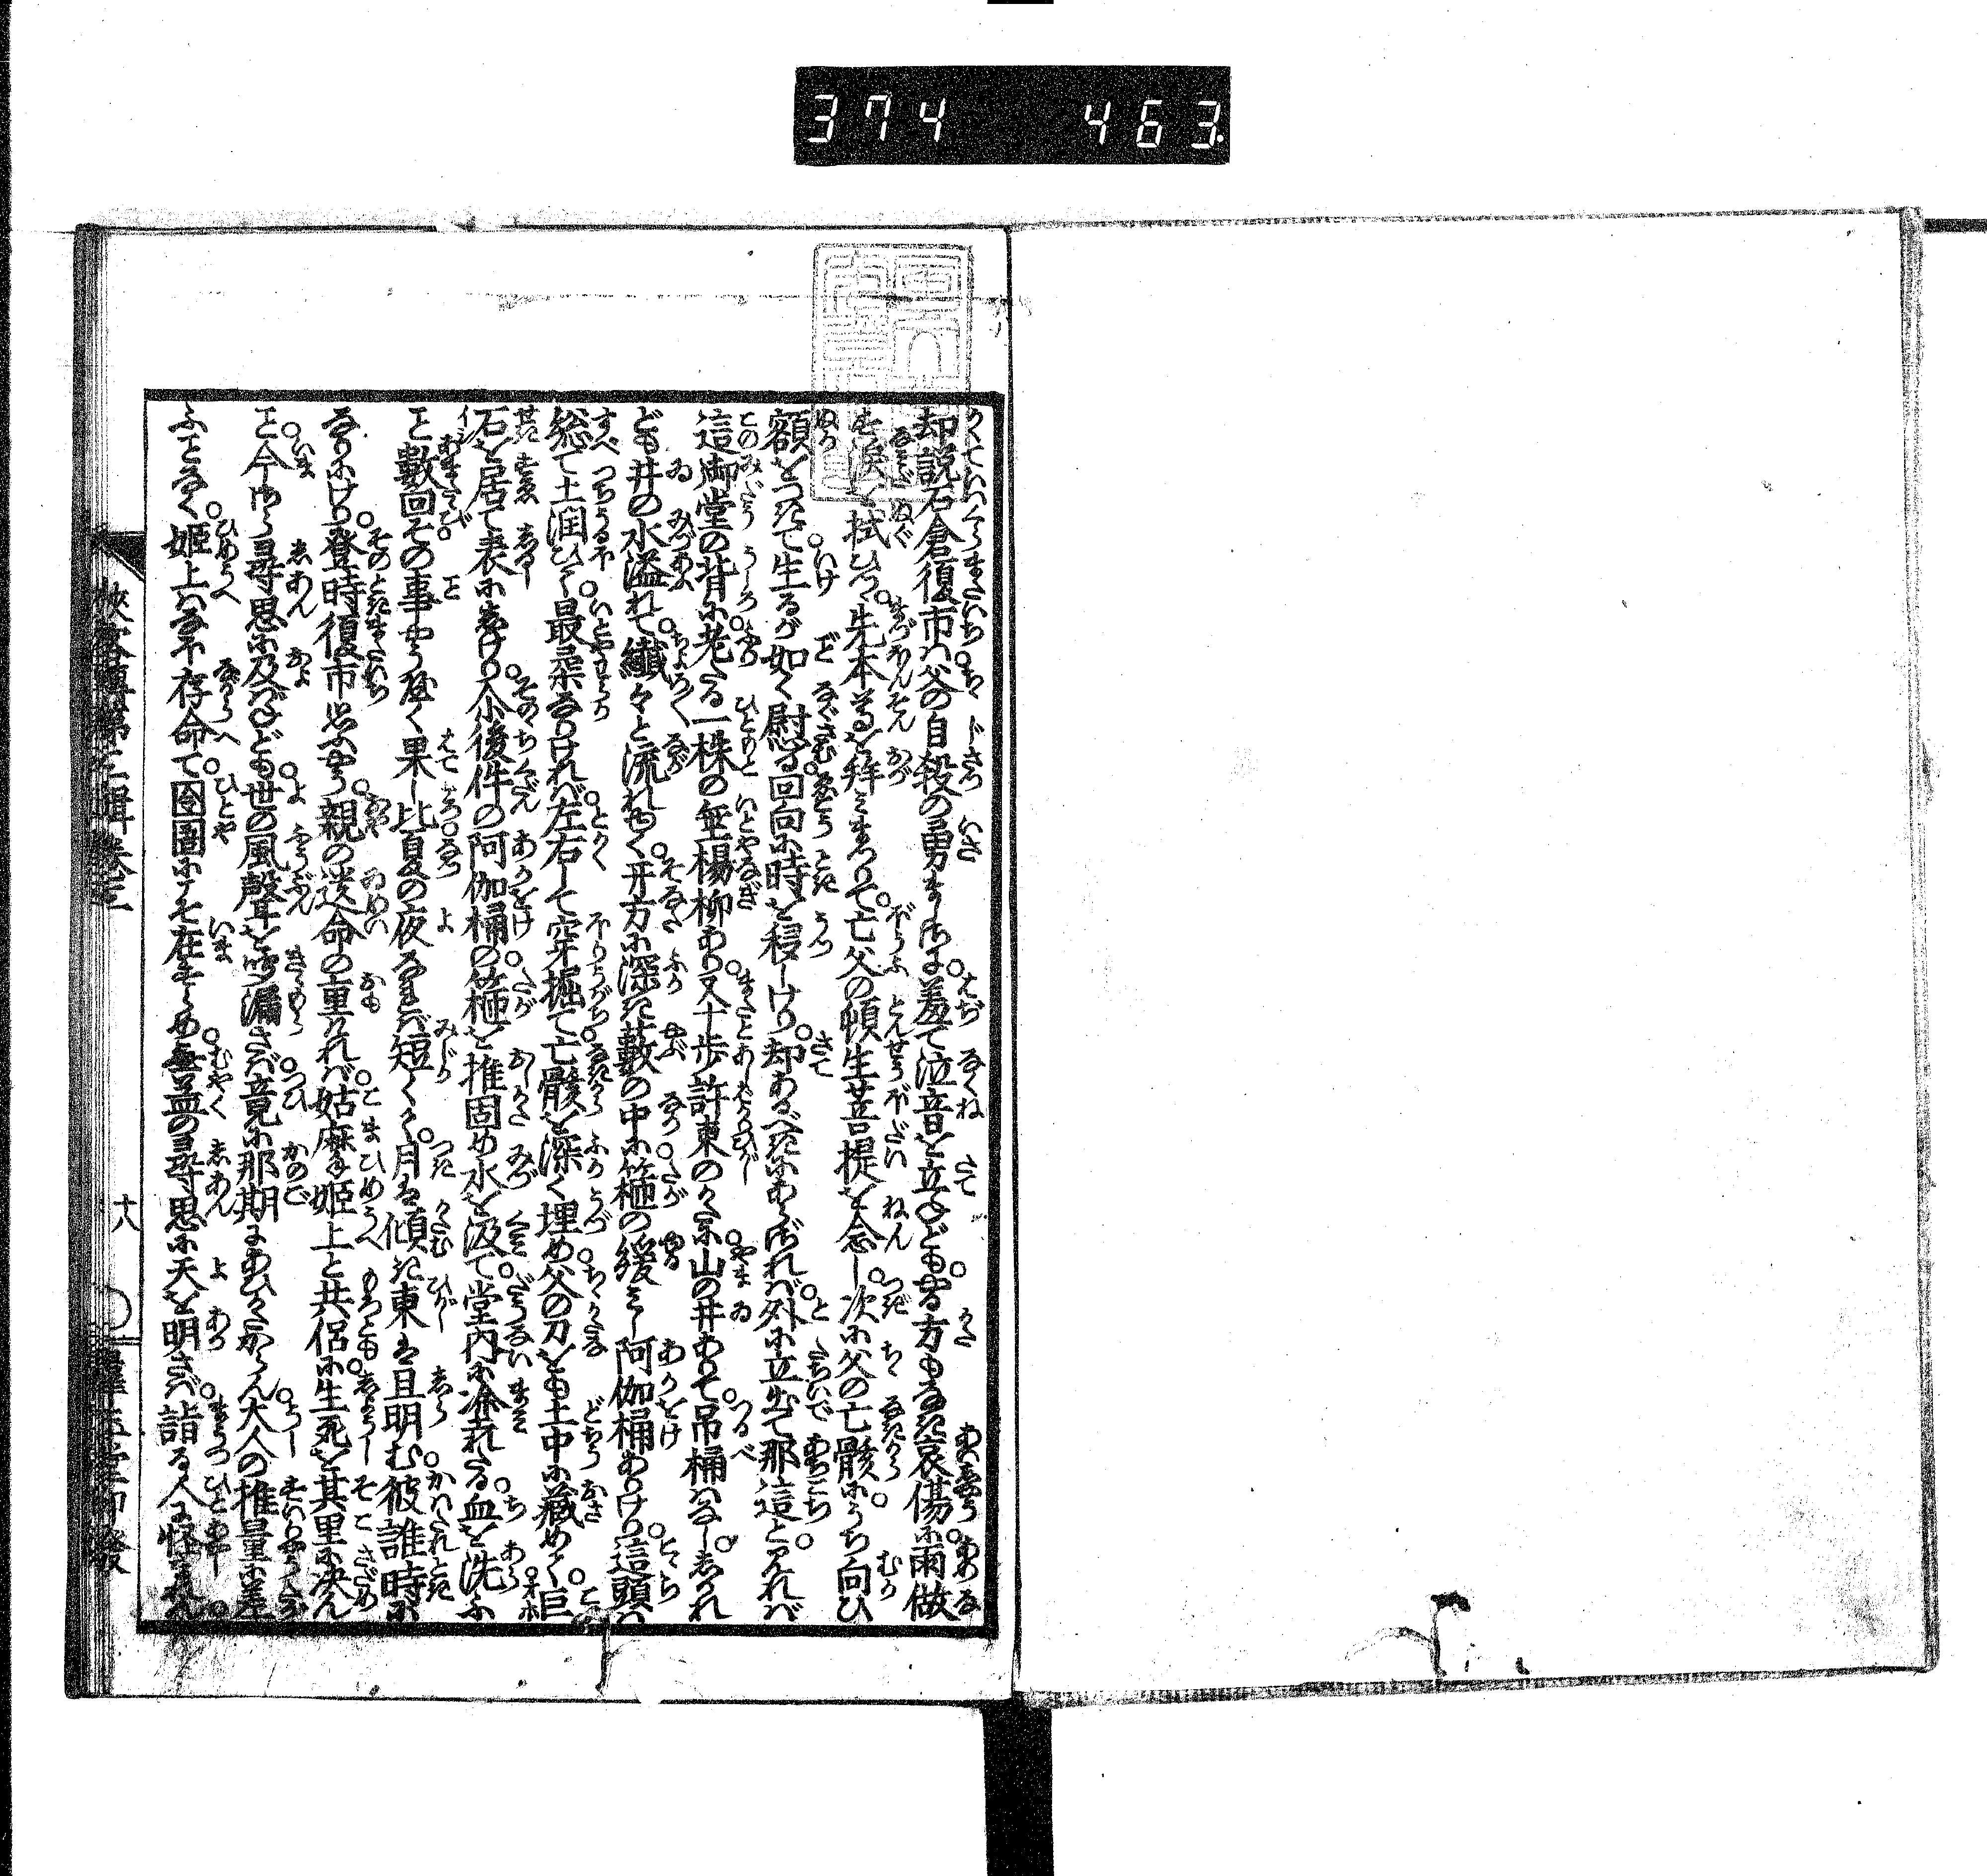 374 463
却説石倉復市ハ父の自殺の勇ましさに羞て泣音を立ねども遣る方もなき哀傷に雨做
す涙を拭ひつゝ先本尊を拜みまゐらして亡父の頓生菩提を念じ次に父の亡骸にうち向ひ
額をつきて生るが如く慰る回向に時を移しけり却あるべきにあらざれバ外に立出て那這と見れバ
這御堂の背に老たる一株の垂楊柳あり又十歩許東のかたに山の井ありて吊桶ハなししかれ
ども井の水溢れて纎々と流れゆく其方に深き藪の中に箍の緩みし阿伽桶ありけり這頭ハ
總て土潤ひて最柔なりけれバ左右して穿掘て亡骸を深く埋め父の刀をも土中に藏めて巨
石を居て表にしけり介後件の阿伽桶の箍を推固め水を汲て堂内に塗れたる血を洗ふ
こと數回その事やうやく果し比夏の夜なれバ短くて月ハ傾き東ハ且明む彼誰時に
なりにけり登時復市思ふやう親の遺命の重けれバ姑麻姫上と共侶に生死を其里に決ん
こと今さら尋思に及バねども世の風聲耳を聆漏さバ竟に那期にあひがたからん大人の推量に差
ふことなく姫上ハなほ存命て囹圄にこそ在すらめ無益の尋思に天を明さバ詣る人に怪まれん
俠客傳第三輯卷三
十八
群玉堂印發